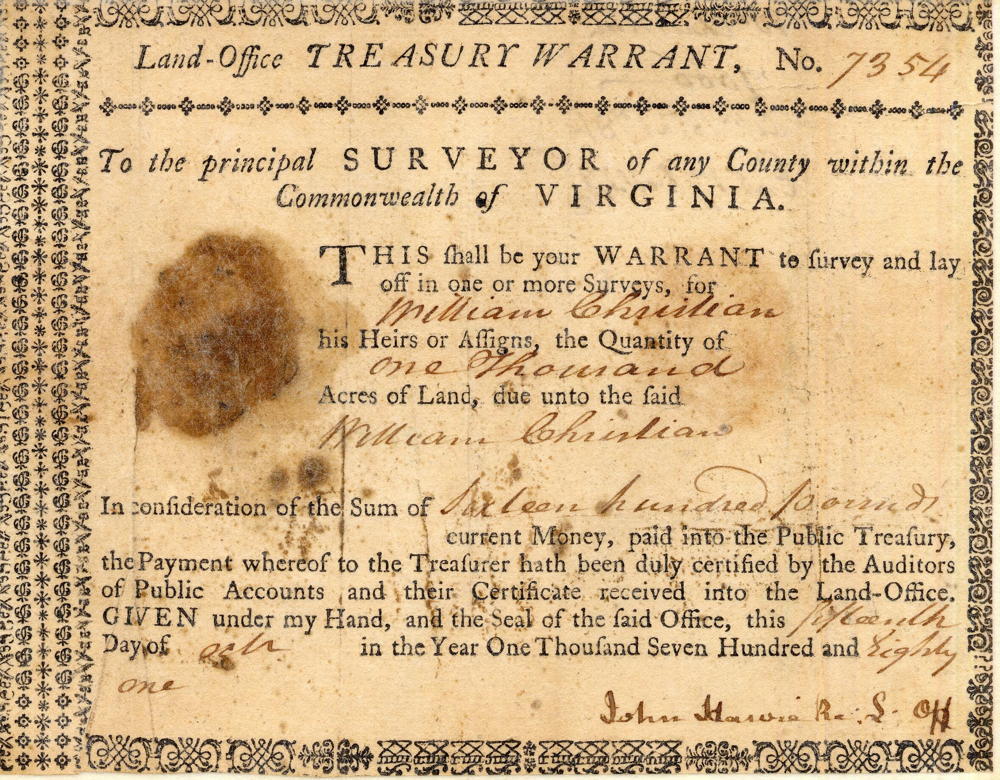 Land-Office TREASURY WARRANT, No. 7354
To the principal SURVEYOR of any County within the
Commonwealth of VIRGINIA.
THIS ſhall be your WARRANT to ſurvey and lay
off in one or more Surveys, for
William Christian
his Heirs or Aſſigns, the Quantity of
one Thousand
Acres of Land, due unto the ſaid
William Christian
In conſideration of the Sum of Sixteen hundred pounds
current Money, paid into the Public Treaſury,
the Payment whereof to the Treaſurer hath been duly certified by the Auditors
of Public Accounts and their Certificate received into the Land-Office.
GIVEN under my Hand, and the Seal of the ſaid Office, this fifteenth
Day of octr in the Year One Thouſand Seven Hundred and Eighty
one
John Harvie Re. L. Off